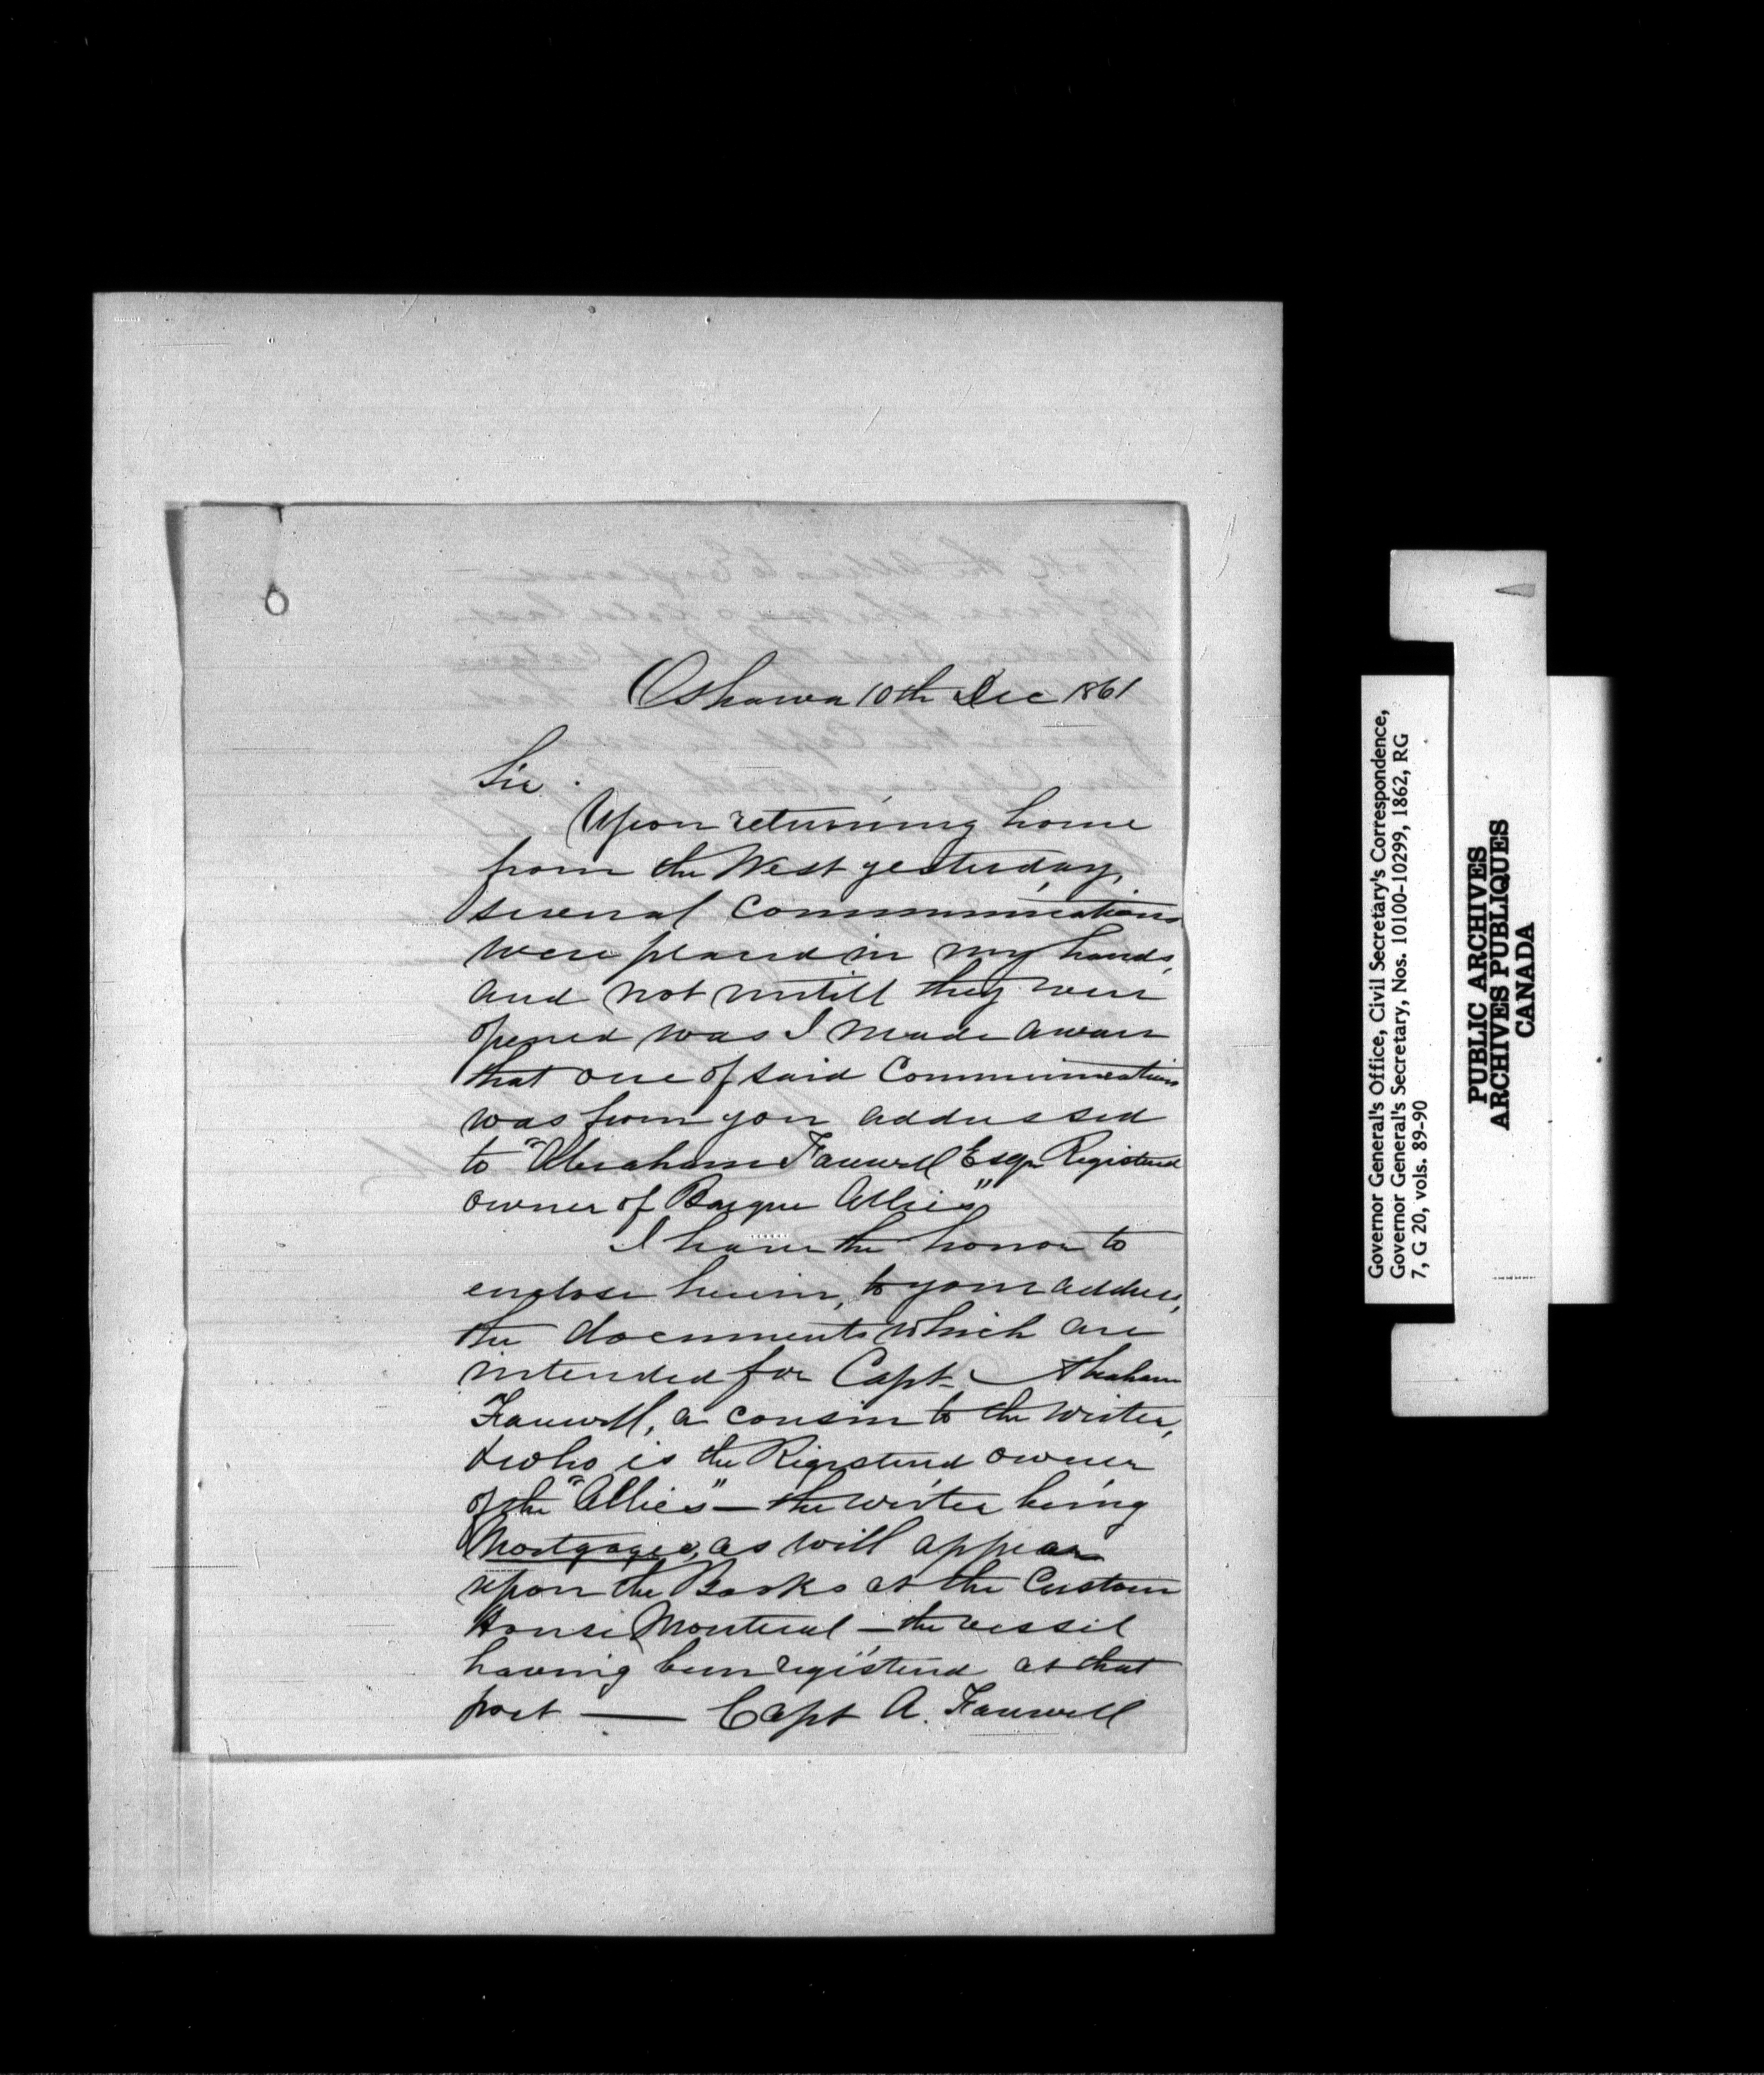 Oshawa 10th Dec 1861
Sir.
Upon returning home
from the West yesterday,
several Communications
were placed in my hands,
and not untill they were
opened was I made aware
that one of said Communications
was from you addressed
to "Abraham Farewell Esqr Registered
owner of Barque Allies"
I have the honor to
enclose herein, to your address,
the documents which are
intended for Capt. Abraham
Farewell, a cousin to the writer,
& who is the Registered owner
of the "Allies" — the writer being
Mortgagee, as will appear
upon the Books at the Custom
House Montreal — the vessel
having been registered at that
port — Capt A. Farewell
Governor General's Office, Civil Secretary's Correspondence,
Governor General's Secretary, Nos. 10100-10299, 1862, RG
7, G 20, vols. 89-90
PUBLIC ARCHIVES
ARCHIVES PUBLIQUES
CANADA